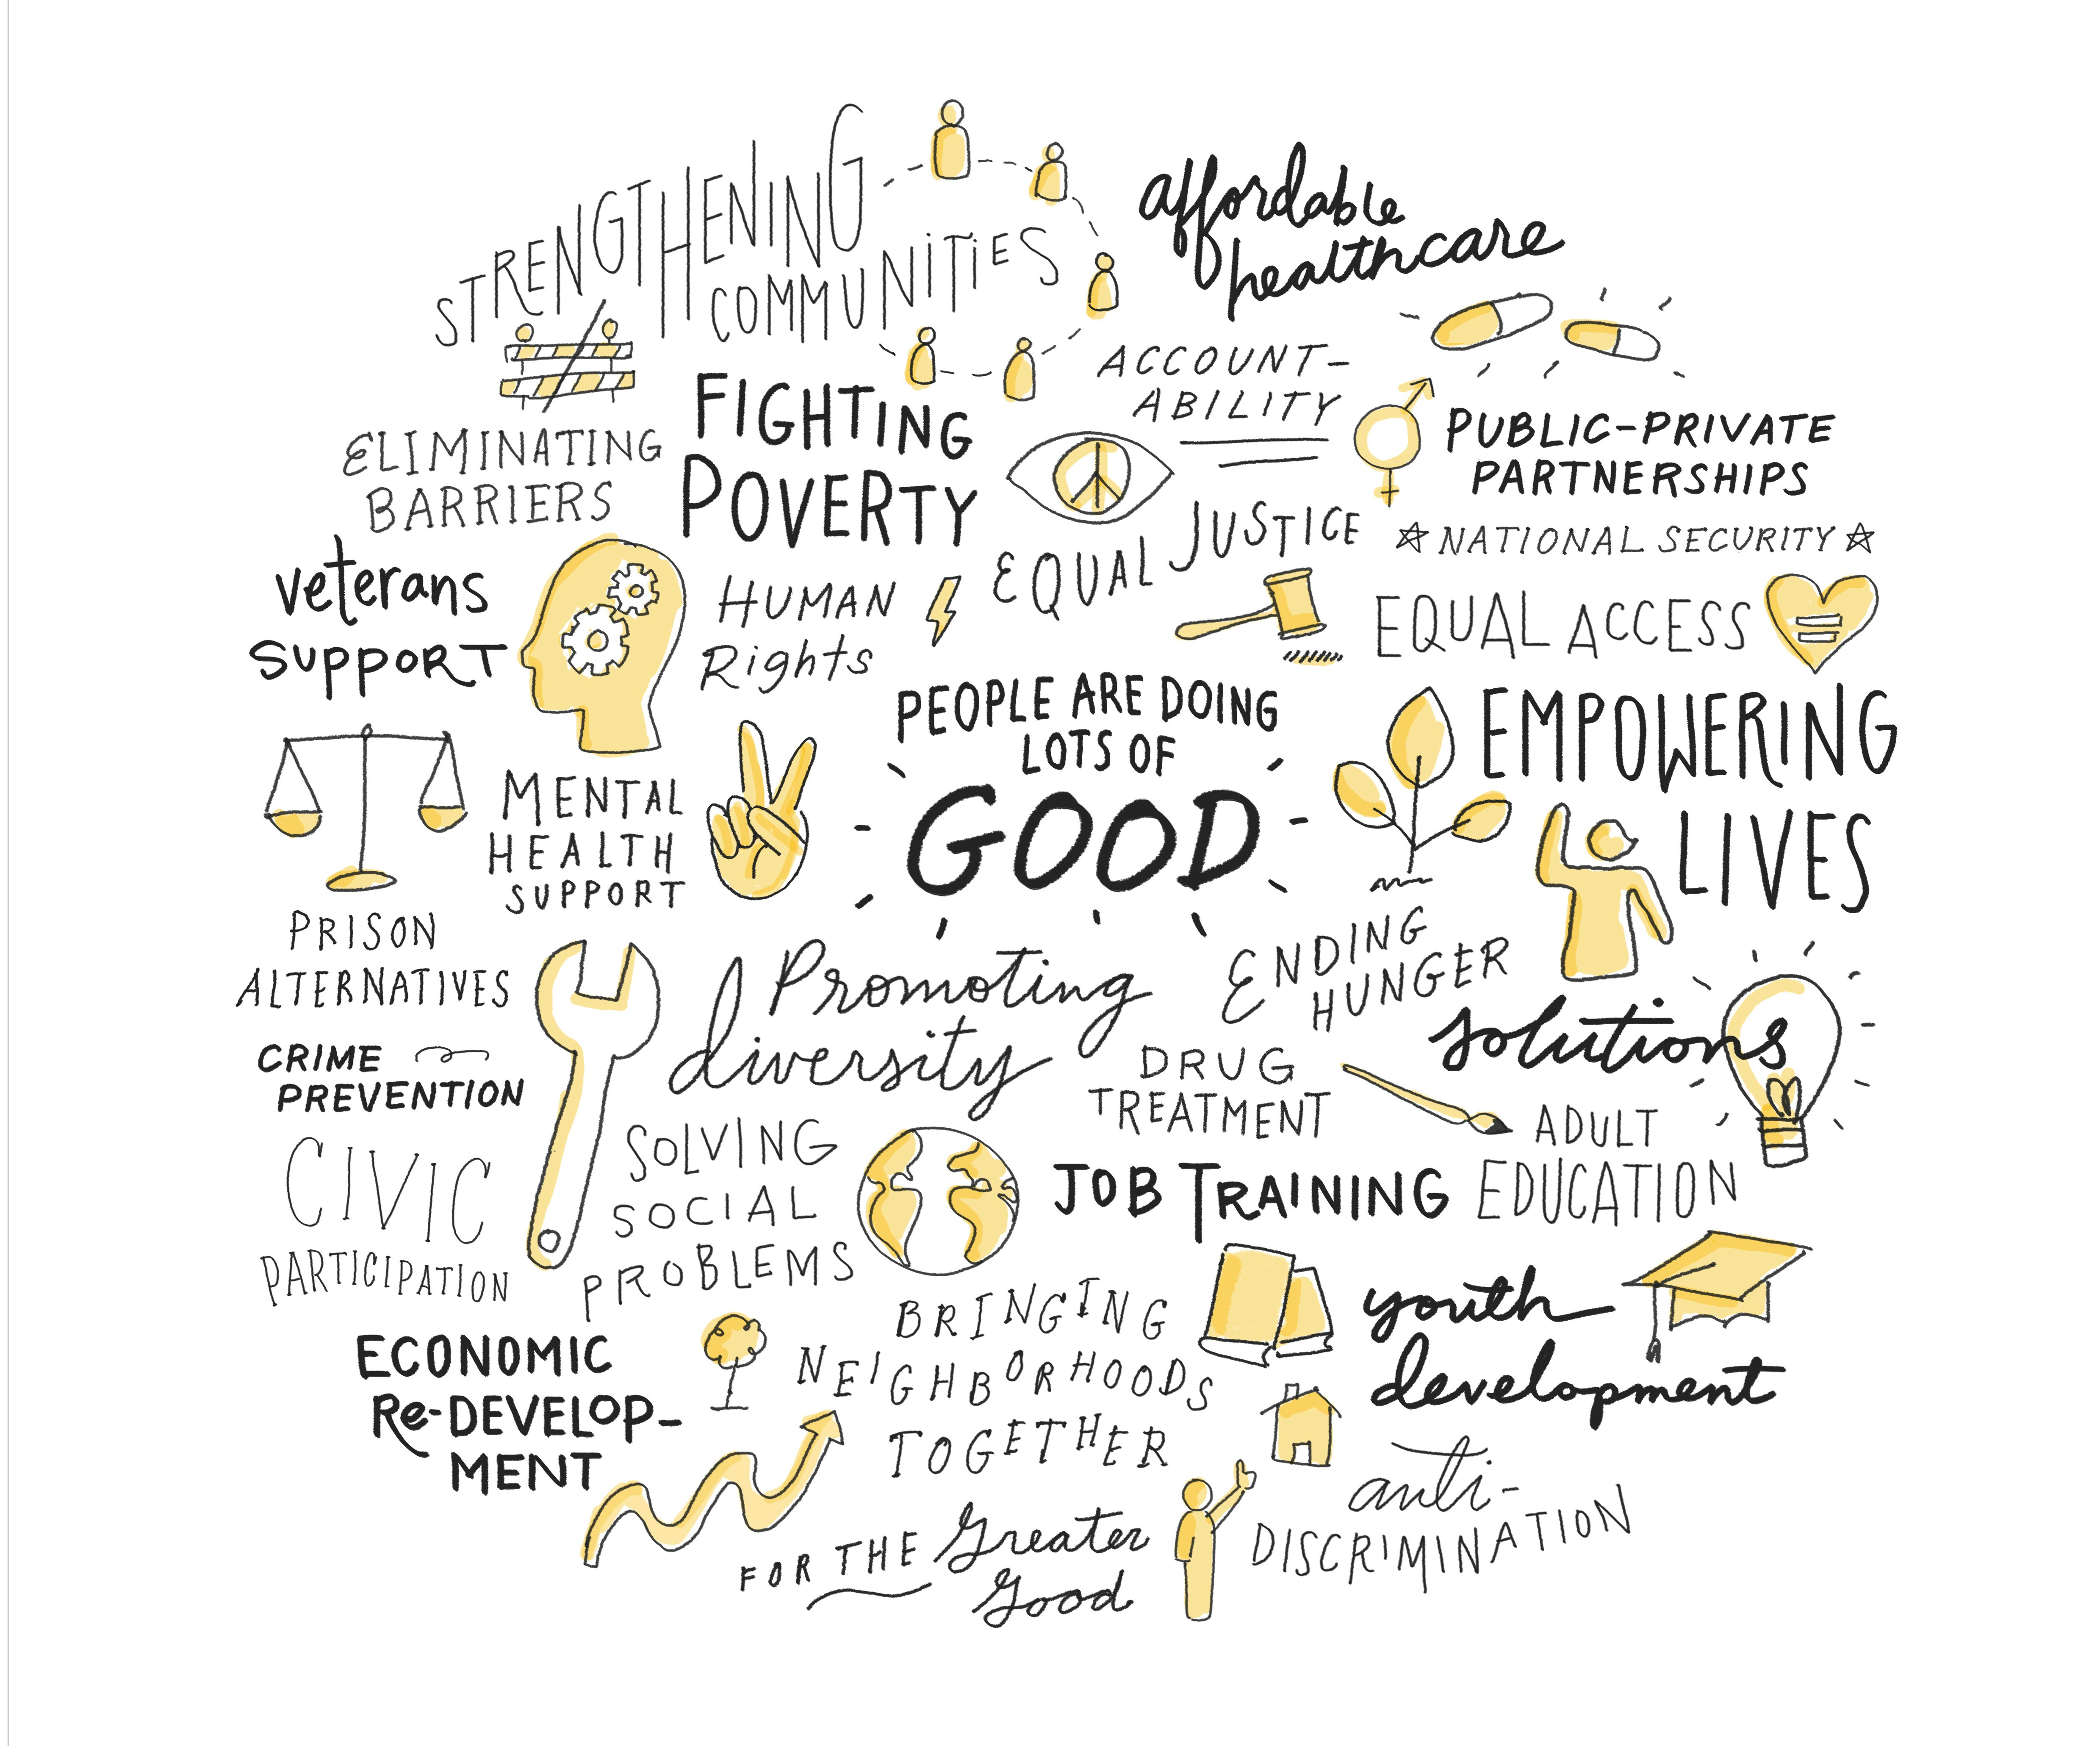 STRENGTHENING
COMMUNITIES
affordable
healthcare
ACCOUNT-
ABILITY
ELIMINATING
BARRIERS
FIGHTING
POVERTY
PUBLIC-PRIVATE
PARTNERSHIPS
NATIONAL SECURITY
EQUAL JUSTICE
veterans
SUPPORT
HUMAN
Rights
EQUAL ACCESS
PEOPLE ARE DOING
LOTS OF
GOOD
EMPOWERING
LIVES
MENTAL
HEALTH
SUPPORT
PRISON
ALTERNATIVES
Promoting
diversity
ENDING
HUNGER
solutions
CRIME
PREVENTION
DRUG
TREATMENT
ADULT
EDUCATION
CIVIC
PARTICIPATION
SOLVING
SOCIAL
PROBLEMS
JOB TRAINING
BRINGING
NEIGHBORHOODS
TOGETHER
youth
development
ECONOMIC
Re-DEVELOP-
MENT
FOR THE Greater
Good
anti-
DISCRIMINATION